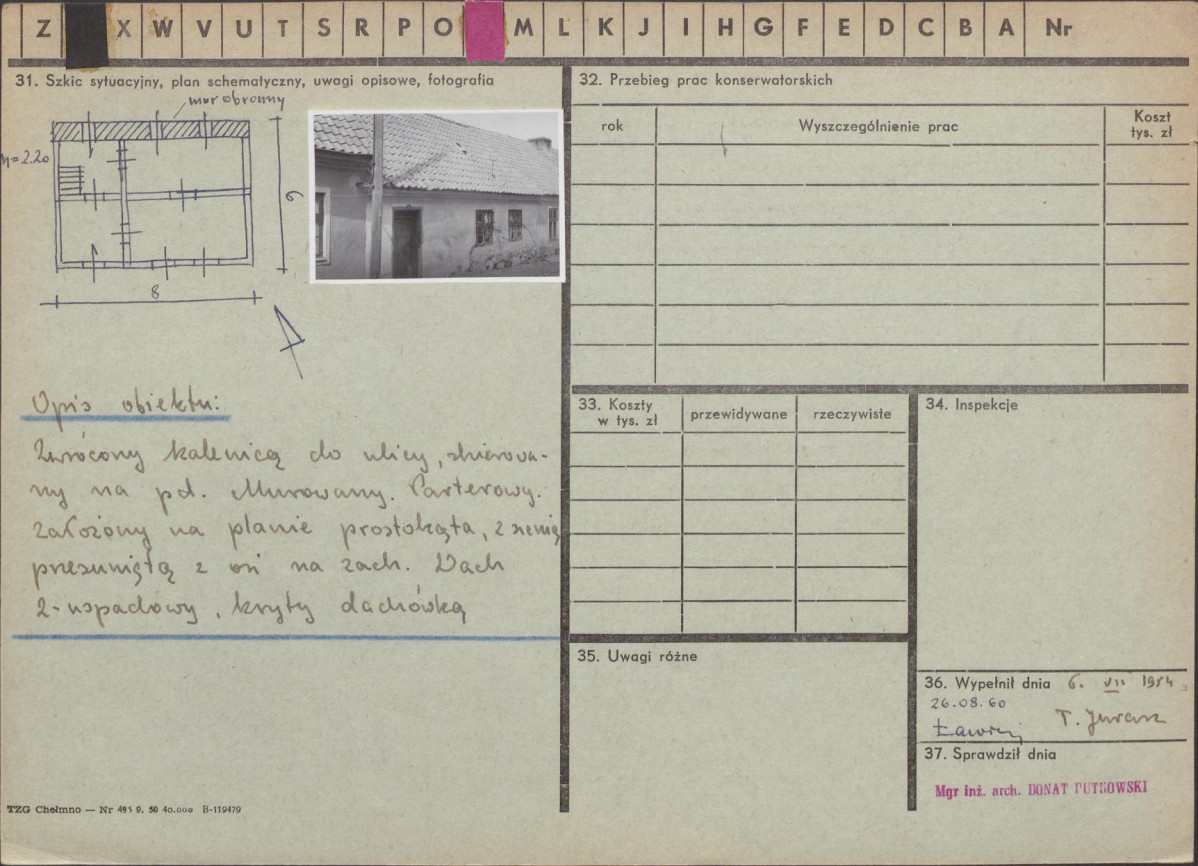 Z X W V U T S R P O M L K J I H G F E D C B A Nr
31. Szkic sytuacyjny, plan schematyczny, uwagi opisowe, fotografia
mur obronny
h=2.20
6
8
Opis obiektu:
Zwrócony kalenicą do ulicy, skierowa-
ny na pd. Murowany. Parterowy.
założony na planie prostokąta, z sienią
przesuniętą z osi na zach. Dach
2-uspadowy, kryty dachówką
TZG Chełmno — Nr 495 9. 50 40.000 B-119479
32. Przebieg prac konserwatorskich
rok Wyszczególnienie prac Koszt
tys. zł
33. Koszty przewidywane rzeczywiste
w tys. zł
34. Inspekcje
35. Uwagi różne
36. Wypełnił dnia 6. VII 1954
26.08.60
T. Jurasz
37. Sprawdził dnia
Mgr inż. arch. DONAT PUTKOWSKI